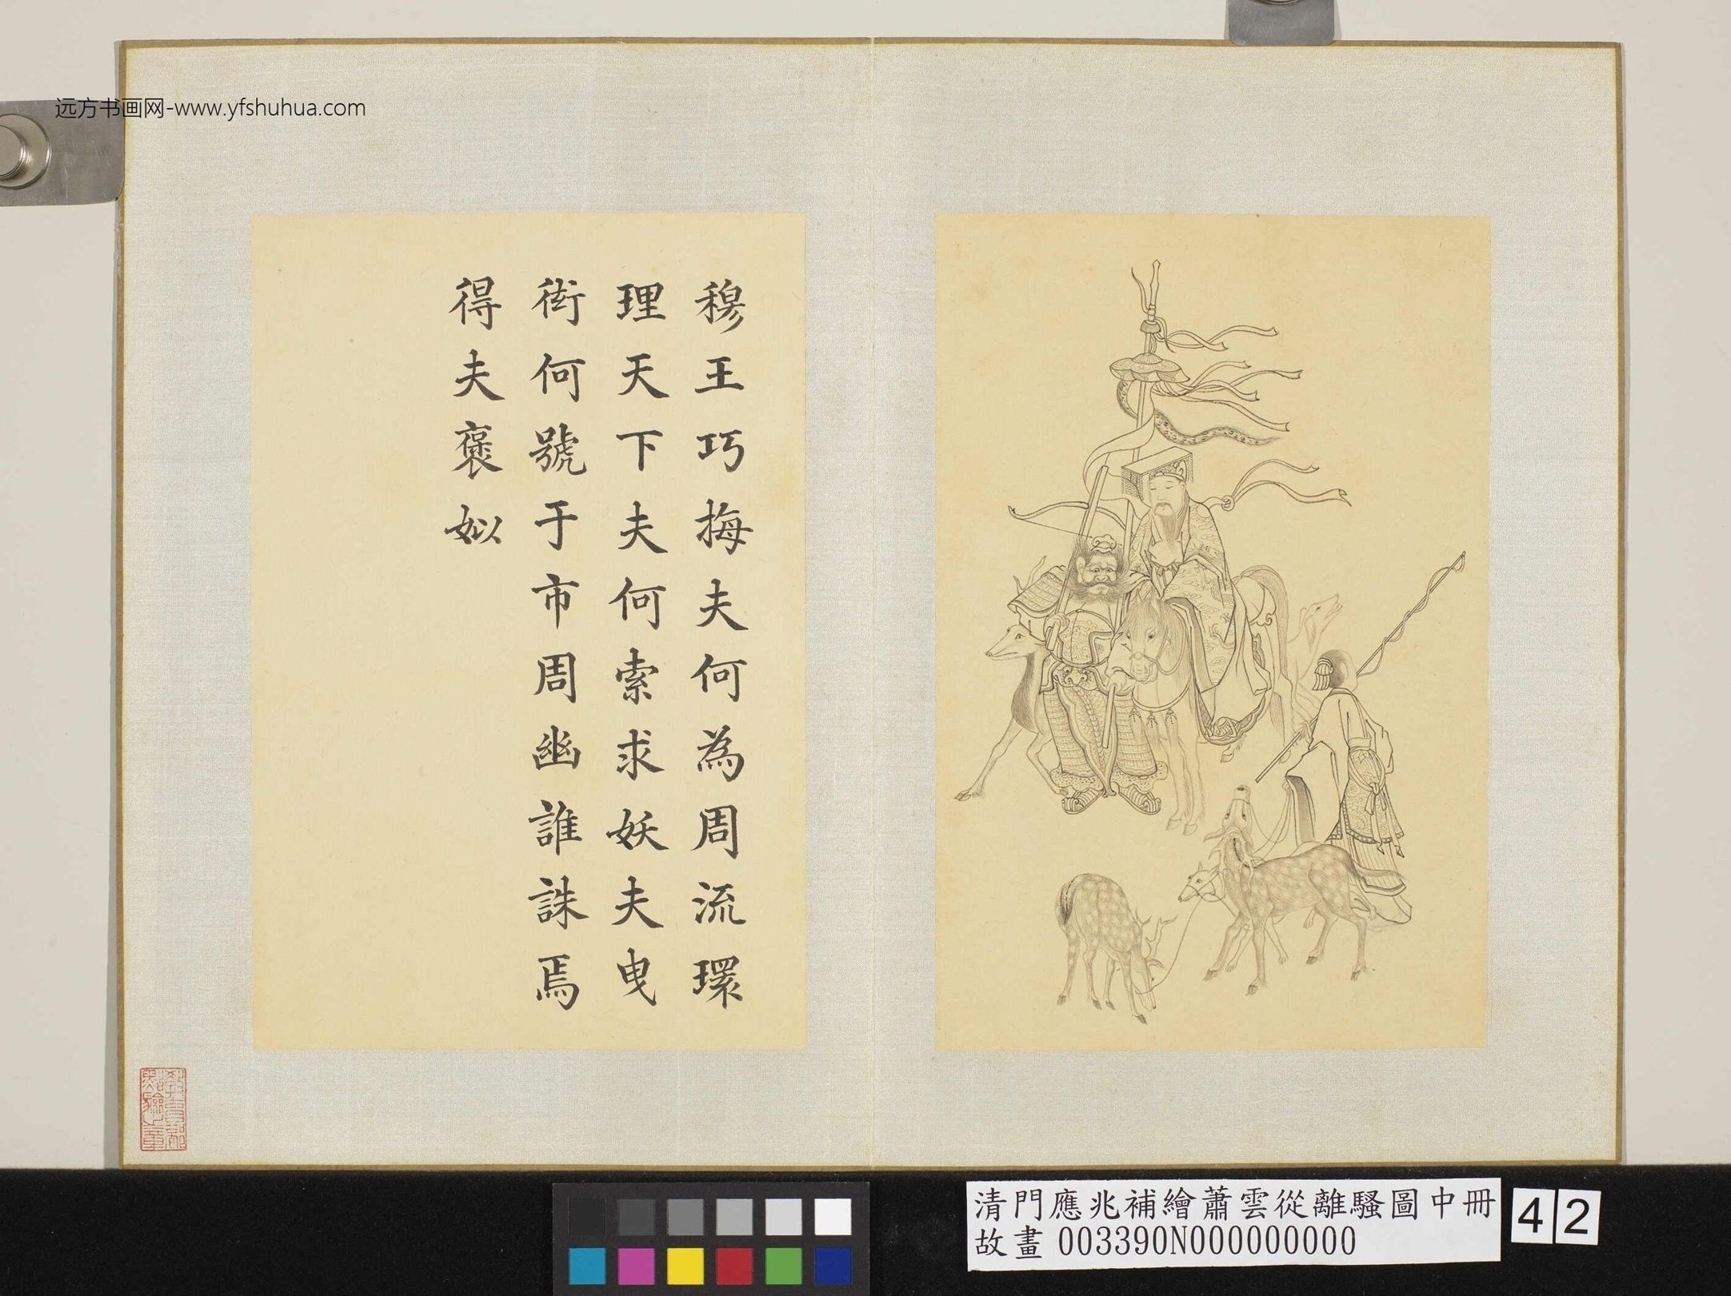 远方书画网-www.yfshuhua.com
穆王巧梅夫何為周流環
理天下夫何索求妖夫曳
衒何號于市周幽誰誅焉
得夫襃姒
清門應兆補繪蕭雲從離騷圖中冊
故畫 003390N000000000
42